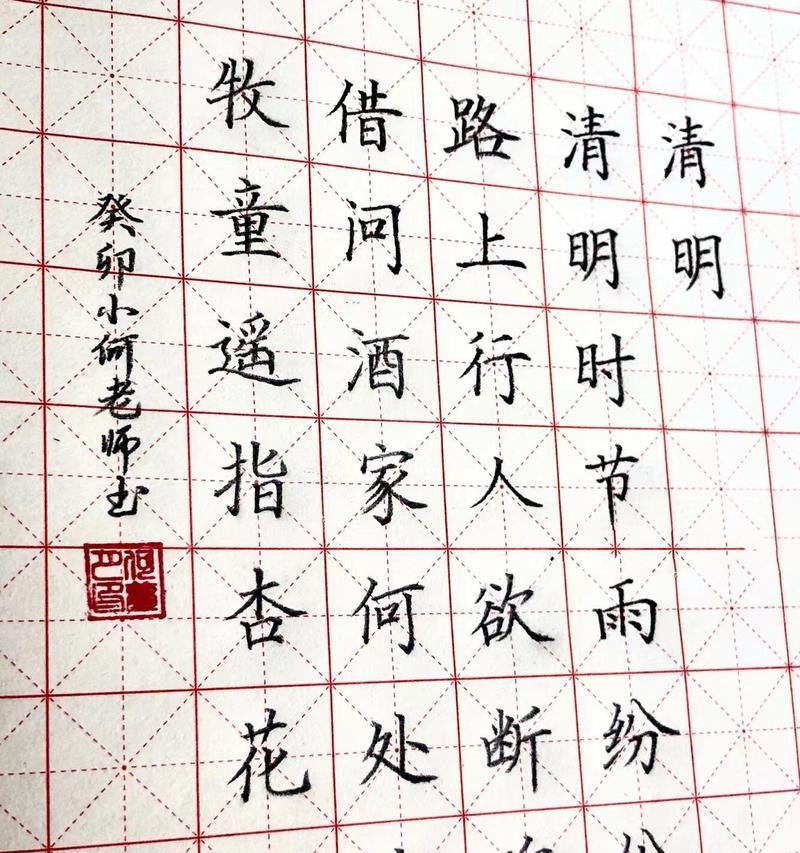 清明
清明时节雨纷
路上行人欲断
借问酒家何处
牧童遥指杏花
癸卯小何老师书